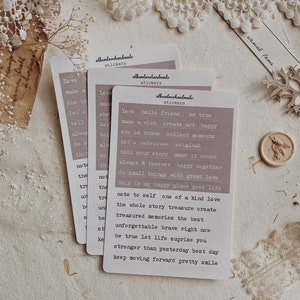 stickers
stickers
stickers
Love hello friend be true
make a wish create art happy
she is brave collect moments
let's celebrate original
tell your story make it count
always & forever happy together
do small things with great love
this is my happy place good life
note to self one of a kind love
the whole story treasure create
treasured memories the best
unforgettable brave right now
be true let life suprise you
stronger than yesterday best day
keep moving forward pretty smile